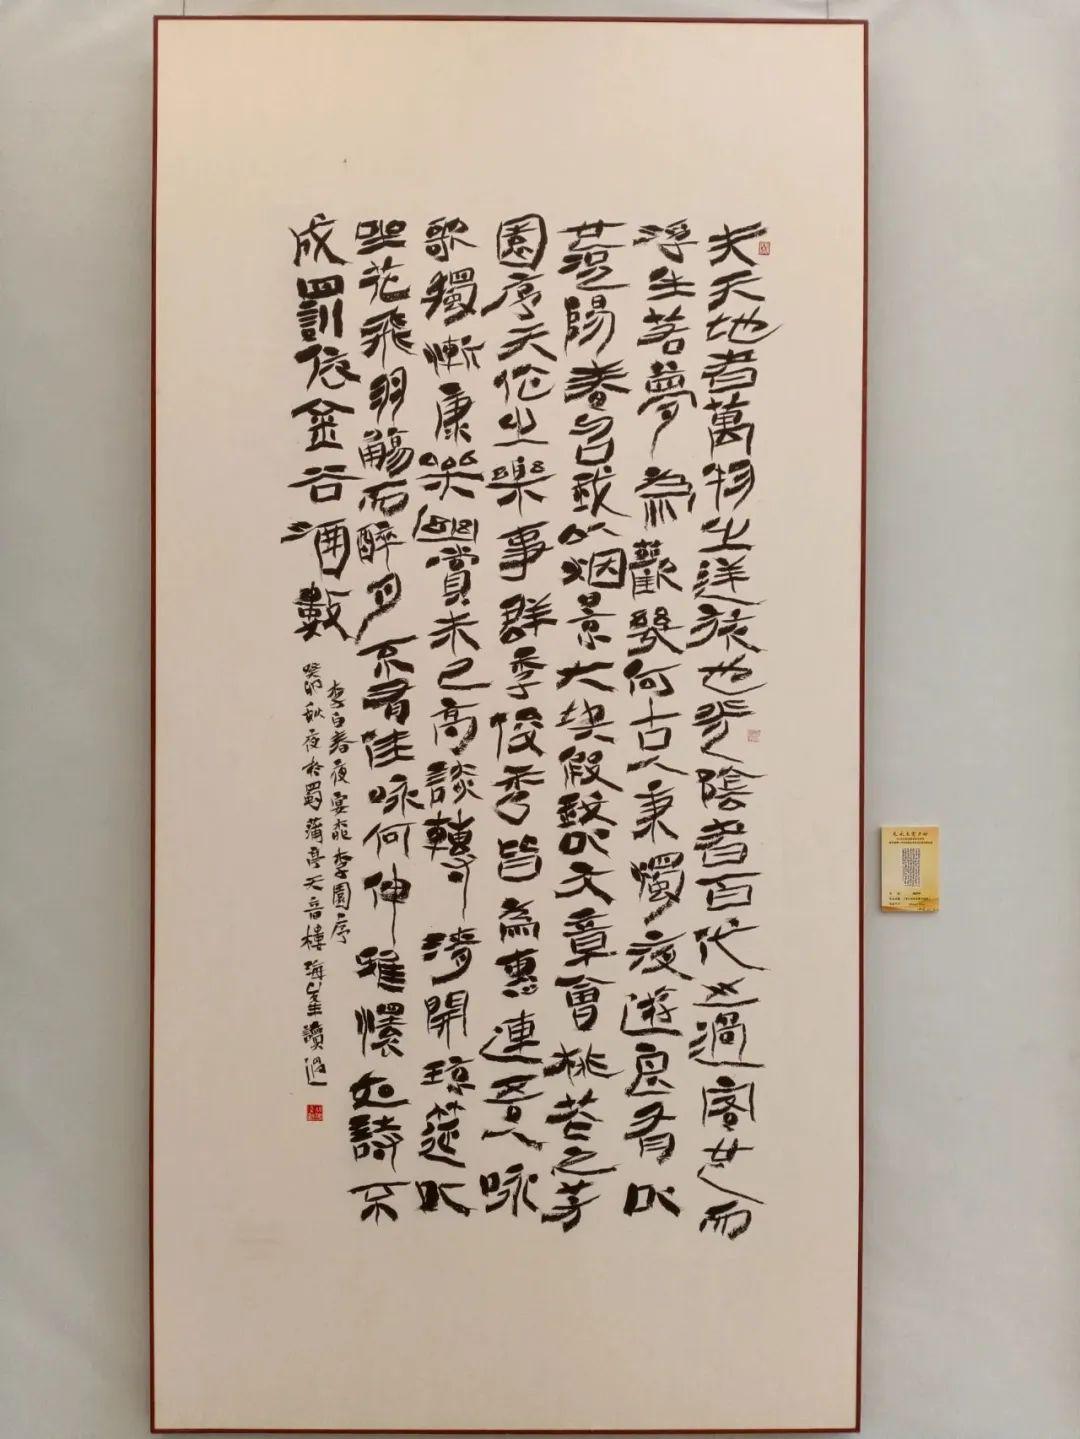 夫天地者萬物之逆旅也光陰者百代之過客也而
浮生若夢為歡幾何古人秉燭夜遊良有以
也況陽春召我以烟景大塊假我以文章會桃花之芳
園序天倫之樂事群季俊秀皆為惠連吾人咏
歌獨慚康樂幽賞未已高談轉清開瓊筵以
坐花飛羽觴而醉月不有佳咏何伸雅懷如詩不
成罰依金谷酒數
李白春夜宴桃李園序
癸卯秋夜於蜀蒲亭天音樓海讀過